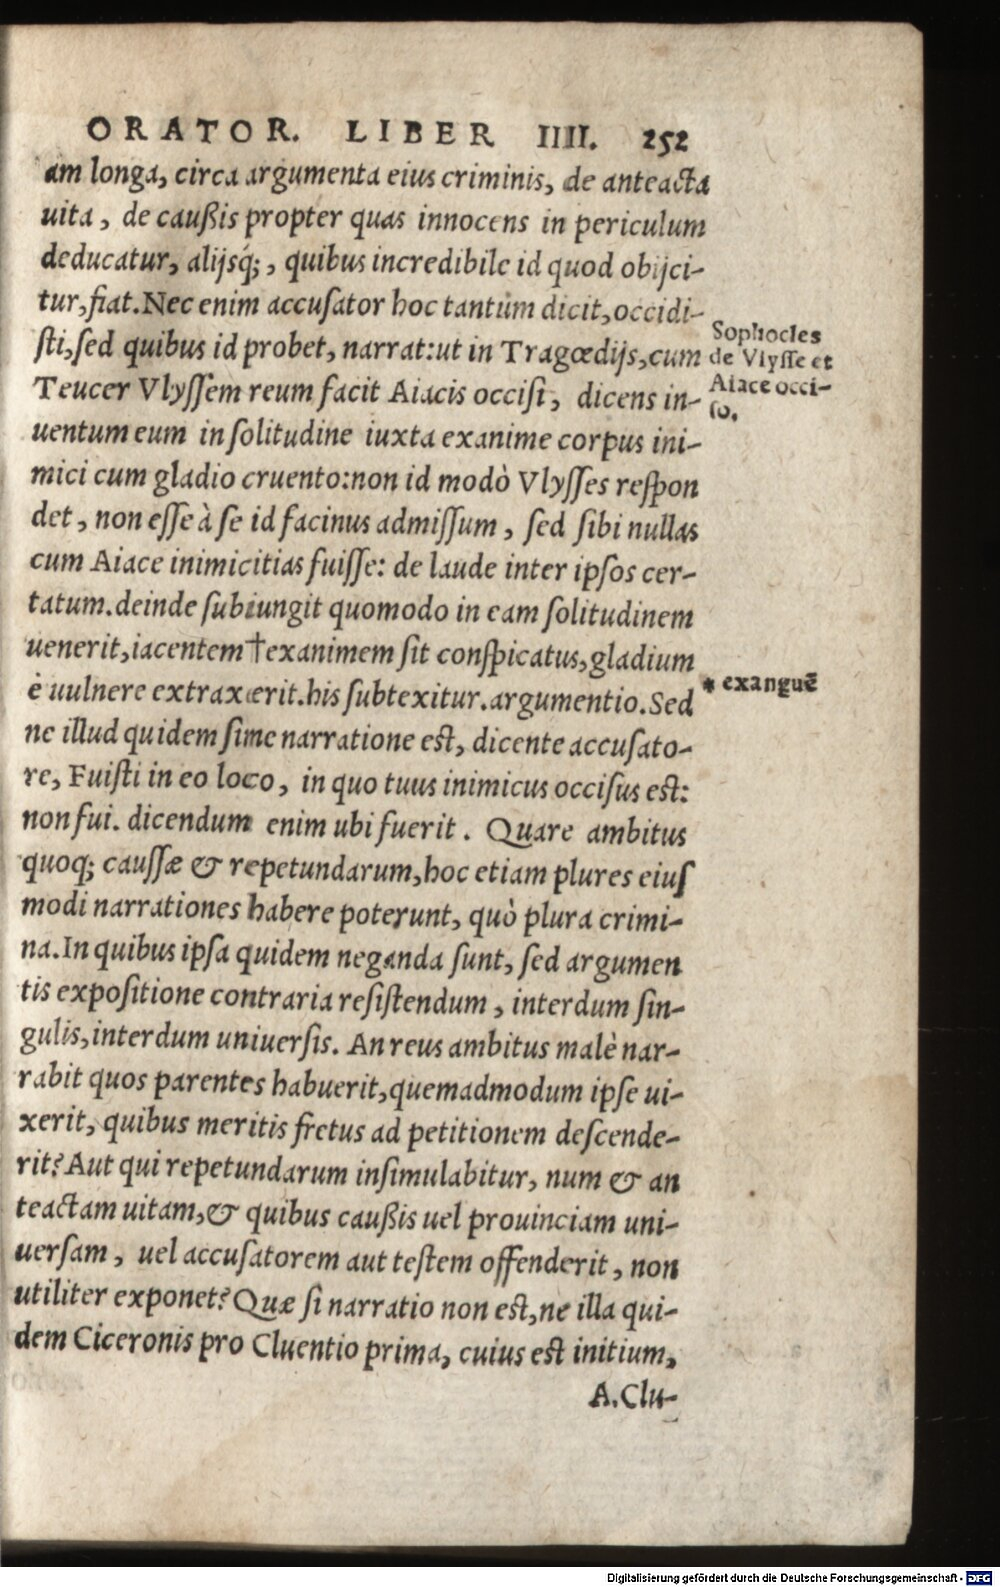 ORATOR. LIBER IIII. 252
am longa, circa argumenta eius criminis, de anteacta
uita, de caußis propter quas innocens in periculum
deducatur, alijsq́;, quibus incredibile id quod obijci-
tur, fiat. Nec enim accuſator hoc tantùm dicit, occidi-
ſti, ſed quibus id probet, narrat: ut in Tragœdijs, cum
Teucer Vlyſſem reum facit Aiacis occiſi, dicens in-
uentum eum in ſolitudine iuxta exanime corpus ini-
mici cum gladio cruento: non id modò Vlyſſes reſpon
det, non eſſe à ſe id facinus admiſſum, ſed ſibi nullas
cum Aiace inimicitias fuiſſe: de laude inter ipſos cer-
tatum. deinde ſubiungit quomodo in eam ſolitudinem
uenerit, iacentem † exanimem ſit conſpicatus, gladium
è uulnere extraxerit. his ſubtexitur. argumentio. Sed
ne illud quidem ſime narratione eſt, dicente accuſato-
re, Fuiſti in eo loco, in quo tuus inimicus occiſus eſt:
non fui. dicendum enim ubi fuerit. Quare ambitus
quoq; cauſſæ & repetundarum, hoc etiam plures eiuſ
modi narrationes habere poterunt, quò plura crimi-
na. In quibus ipſa quidem neganda ſunt, ſed argumen
tis expoſitione contraria reſiſtendum, interdum ſin-
gulis, interdum uniuerſis. An reus ambitus malè nar-
rabit quos parentes habuerit, quemadmodum ipſe ui-
xerit, quibus meritis fretus ad petitionem deſcende-
rit? Aut qui repetundarum inſimulabitur, num & an
teactam uitam, & quibus caußis uel prouinciam uni-
uerſam, uel accuſatorem aut teſtem offenderit, non
utiliter exponet? Quæ ſi narratio non eſt, ne illa qui-
dem Ciceronis pro Cluentio prima, cuius eſt initium,
A. Clu-
Sophocles
de Vlyſſe et
Aiace occi-
ſo.
* exanguē
Digitalisierung gefördert durch die Deutsche Forschungsgemeinschaft - DFG